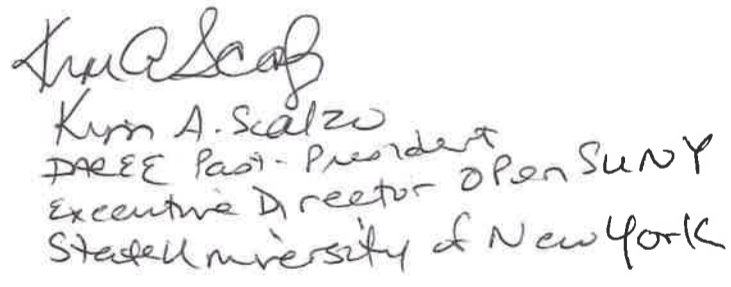 Kim A Scalzo
Kim A. Scalzo
Past-President
Executive Director Open SUNY
State University of New York